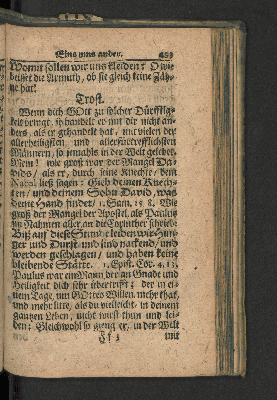 Eins ums ander. 453
Womit sollen wir uns kleiden? O wie
beisset die Armuth, ob sie gleich keine Zäh-
ne hat!
Trost.
Wenn dich GOtt zu solcher Dürfftig-
keit bringt, so handelt er mit dir nicht an-
ders, als er gehandelt hat, mit vielen der
allerheiligsten und allerfürtrefflichsten
Männern, so jemahls in der Welt gelebet.
Mein! wie groß war der Mangel Da-
vids, als er, durch seine Knechte, dem
Nabal ließ sagen: Gieb deinen Knech-
ten, und deinem Sohn David, was
deine Hand findet, 1. Sam. 25. 8. Wie
groß der Mangel der Apostel, als Paulus
im Nahmen aller an die Corinther schreibt:
Biß auf diese Stunde leiden wir Hun-
ger und Durst und sind nackend, und
werden geschlagen, und haben keine
bleibende Stätte. 1. Epist. Cor. 4, 13.
Paulus war ein Mann der an Gnade und
Heiligkeit dich sehr übertrifft; der in ei-
nem Tage, um GOttes Willen mehr that,
und mehr litte, als du vielleicht, in deinem
gantzen Leben, nicht wirst thun und lei-
den: Gleichwohl so gieng er, in der Welt
Ff 3 mit